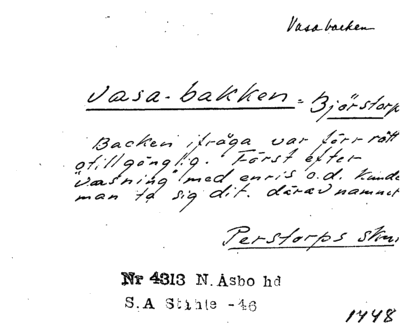 Vasabacken
Væsa-bakken = Björstorp
Backen ifråga var förr rätt
otillgänglig. Först efter
"væsning" med enris o.d. kunde
man ta sig dit. därav namnet
Perstorps skn
Nr 4313 N. Åsbo hd
S.A Stihle -46
1448